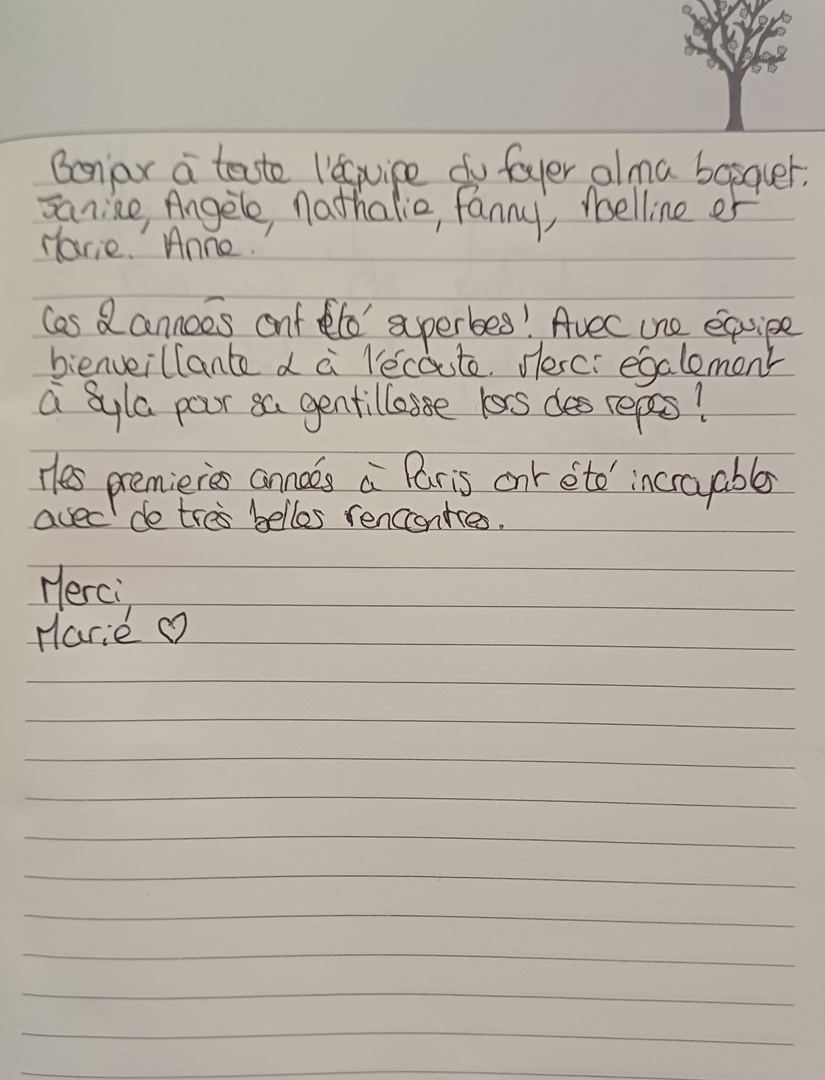 Bonjour à toute l'équipe du foyer alma bosquet.
Janine, Angèle, Nathalie, Fanny, et
Marie. Anne.
Ces 2 années ont été superbes! Avec une équipe
bienveillante & à l'écoute. Merci également
à Syla pour sa gentillesse lors des repas!
Mes premières années à Paris ont été incroyables
avec de très belles rencontres.
Merci,
Marie ♡